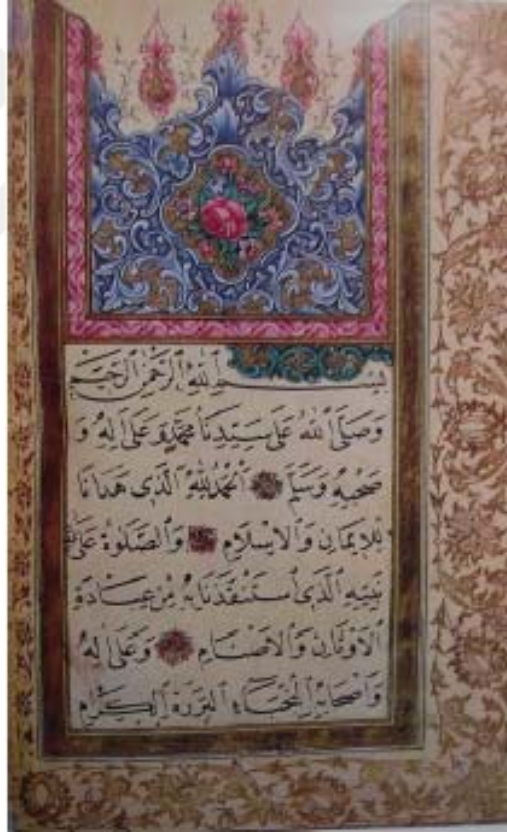 بِسْمِ اللهِ الرَّحْمٰنِ الرَّحِيمِ
وَصَلَّى اللهُ عَلَى سَيِّدِنَا مُحَمَّدٍ وَعَلَى اٰلِهِ وَ
صَحْبِهِ وَسَلَّمَ اَلْحَمْدُ لِلّٰهِ الَّذِى هَدَانَا
لِلْاِيمَانِ وَالْاِسْلَامِ وَالصَّلٰوةُ عَلَى
نَبِيِّهِ الَّذِى اسْتَنْقَذَنَا بِهِ مِنْ عِبَادَةِ
الْاَوْثَانِ وَالْاَصْنَامِ وَعَلَى اٰلِهِ
وَاَصْحَابِهِ النُّجَبَاءِ الْبَرَرَةِ الْكِرَامِ